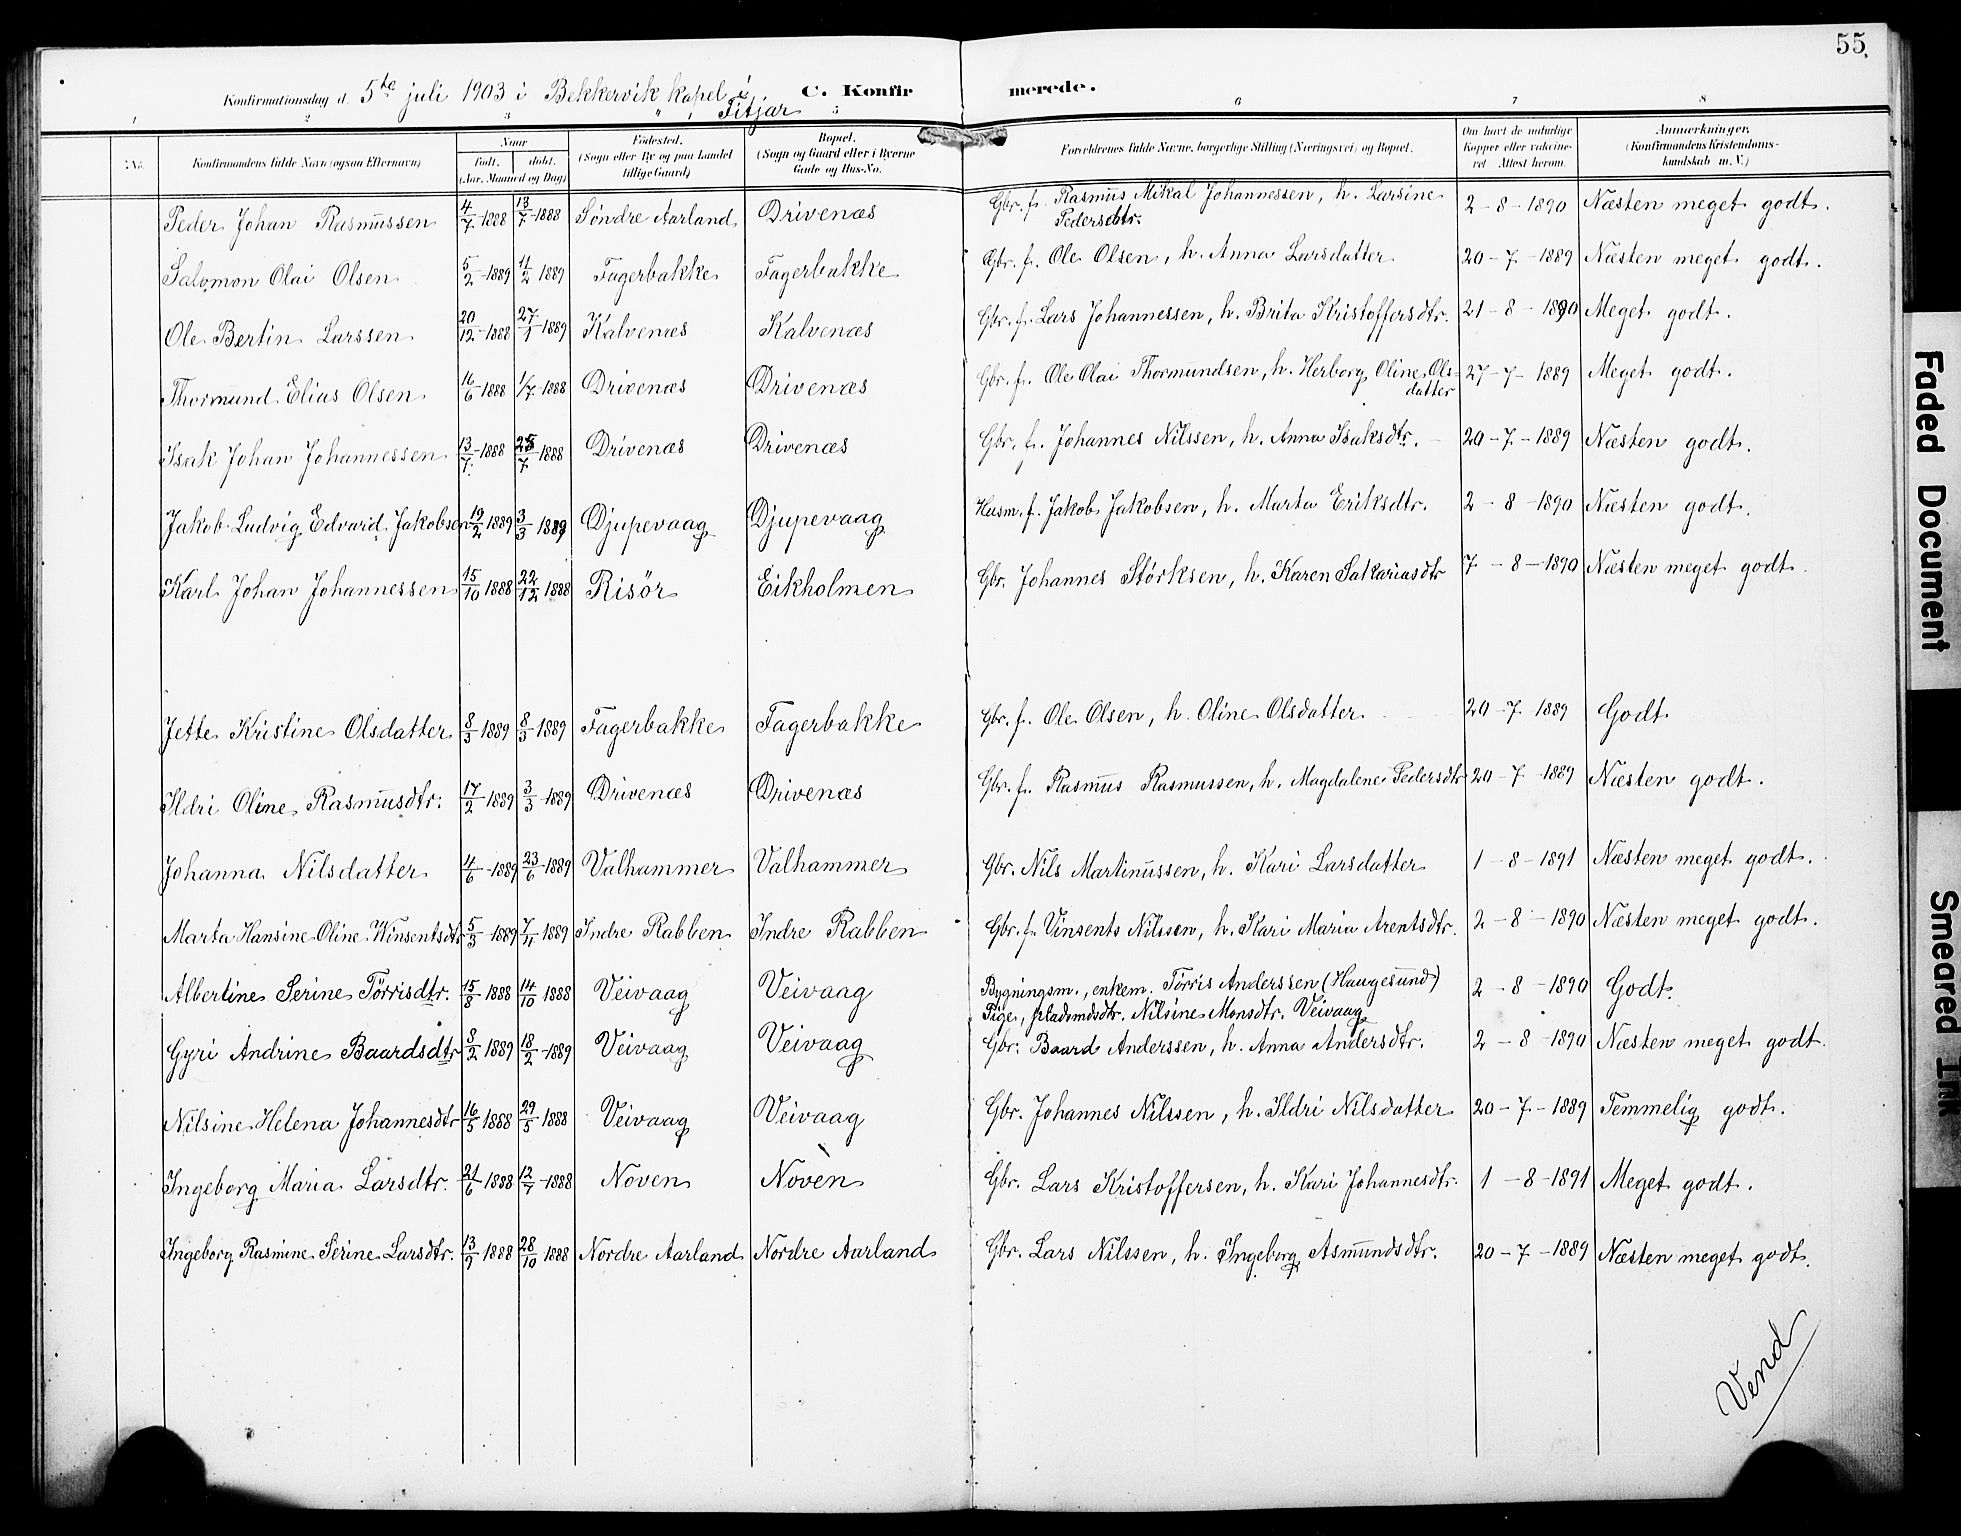 55.
Konfirmationsdag d. 5te juli 1903 i Bekkervik kapel i Fitjar
C. Konfirmerede.
1 2 3 4 5 6 7 8
No. Konfirmandens fulde Navn (ogsaa Efternavn) Naar født. døbt. (Aar, Maaned og Dag) Fødested. (Sogn eller By og paa Landet tillige Gaard) Bopæl. (Sogn og Gaard eller i Byerne Gade og Hus-No. Forældrenes fulde Navne, borgerlige Stilling (Næringsvei) og Bopæl. Om havt de naturlige Kopper eller vakcineret Attest herom. Anmærkninger. (Konfirmandens Kristendomskundskab m. V.)
Peder Johan Rasmussen 4/7-1888 13/7-1888 Søndre Aarland Drivenæs Gbr. f. Rasmus Mikal Johannessen, h. Larsine Pedersdtr. 2-8-1890 Næsten meget godt.
Salomon Olai Olsen 5/2-1889 11/2 1889 Fagerbakke Fagerbakke Gbr. f. Ole Olsen, h. Anna Larsdatter 20-7-1889 Næsten meget godt.
Ole Bertin Larssen 20/12-1888 27/1 1889 Kalvenæs Kalvenæs Gbr. f. Lars Johannessen, h. Brita Kristoffersdtr. 21-8-1890 Meget godt.
Thormund Elias Olsen 16/6 1888 1/7-1888 Drivenæs Drivenæs Gbr. f. Ole Olai Thormundsen, h. Herborg Oline Olsdatter 27-7-1889 Meget godt.
Isak Johan Johannessen 13/7-1888 25/7 1888 Drivenæs Drivenæs Gbr. f. Johannes Nilssen, h. Anna Isaksdtr. 20-7-1889 Næsten godt.
Jakob Ludvig Edvard Jakobsen 19/2 1889 3/3 1889 Djupevaag Djupevaag Husm. f. Jakob Jakobsen, h. Marta Eriksdtr. 2-8-1890 Næsten godt.
Karl Johan Johannessen 15/10 1888 22/12 1888 Risör Eikholmen Gbr. Johannes Størksen, h. Karen Sakariasdtr 7-8-1890 Næsten meget godt.
Jette Kristine Olsdatter 8/3-1889 8/3-1889 Fagerbakke Fagerbakke Gbr. f. Ole Olsen, h. Oline Olsdatter 20-7 1889 Godt
Ildri Oline Rasmusdtr. 17/2-1889 3/3-1889 Drivenæs Drivenæs Gbr. f. Rasmus Rasmussen, h. Magdalene Pedersdtr 20-7-1889 Næsten godt.
Johanna Nilsdatter 4/6-1889 23/6-1889 Valhammer Valhammer Gbr. Nils Martinussen, h. Kari Larsdatter 1-8-1891 Næsten meget godt.
Marta Hansine Oline Winsentsdtr 5/3-1889 7/4-1889 Indre Rabben Indre Rabben Gbr. f. Vinsents Nilssen, h. Kari Maria Arentsdtr. 2-8-1890 Næsten meget godt.
Albertine Serine Tørrisdtr. 15/8-1888 14/10 1888 Veivaag Veivaag Bygningsm., enkem. Tørris Anderssen (Haugesund) Pige, Nilsine Monsdtr. Veivaag 2-8-1890 Godt.
Gyri Andrine Baardsdtr 3/2-1889 18/2-1889 Veivaag Veivaag Gbr. Baard Anderssen, h. Anna Andersdtr. 2-8-1890 Næsten meget godt.
Nilsine Helena Johannesdtr 16/5 1888 29/5-1888 Veivaag Veivaag Gbr. Johannes Nilssen, h. Ildri Nilsdatter 20-7-1889 Temmelig godt.
Ingeborg Maria Larsdtr. 21/6 1888 12/7-1888 Noven Noven Gbr. Lars Kristoffersen, h. Kari Johannesdtr. 1-8-1891 Meget godt.
Ingeborg Rasmine Serine Larsdtr. 13/9 1888 28/10 1888 Nordre Aarland Nordre Aarland Gbr. Lars Nilssen, h. Ingeborg Asmundsdtr. 20-7-1889 Næsten meget godt.
Vend
Faded Document
Smeared Ink